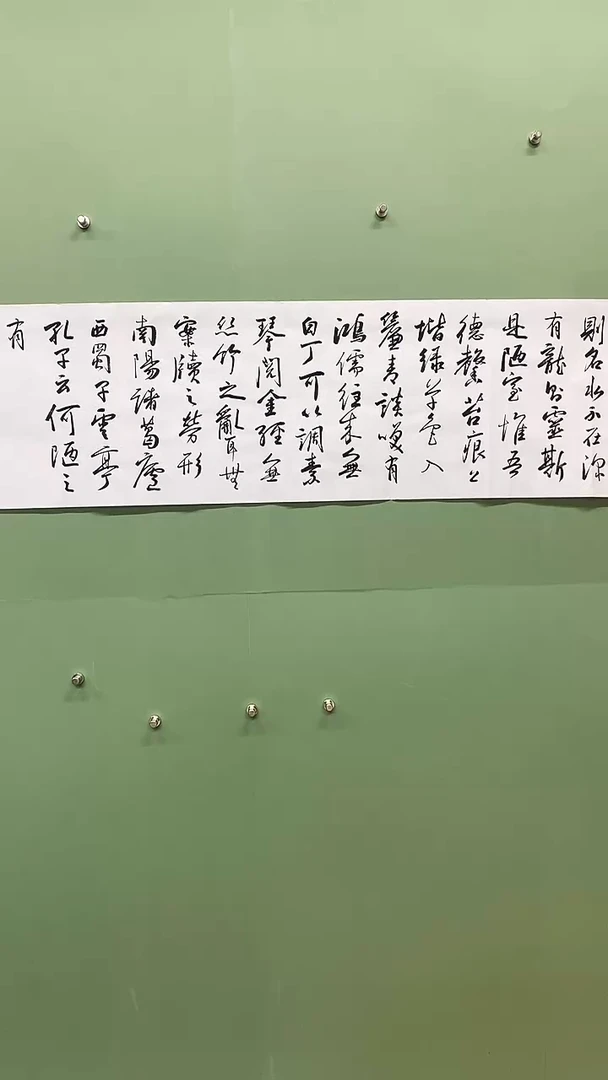 則名水不在深
有龍則靈斯
是陋室惟吾
德馨苔痕上
堦綠草色入
簾青談咲有
鴻儒往來無
白丁可以調素
琴閱金經無
絲竹之亂耳無
案牘之勞形
南陽諸葛廬
西蜀子雲亭
孔子云何陋之
有